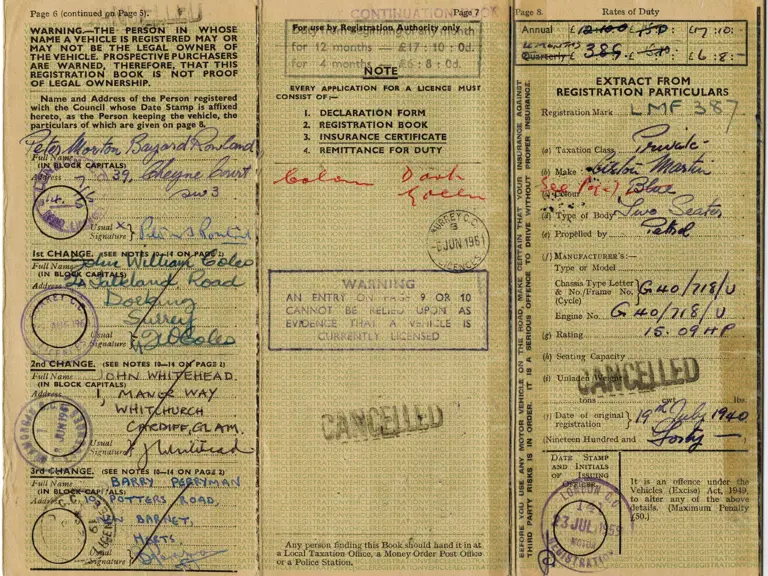 Page 6 (continued on Page 5).
WARNING.—THE PERSON IN WHOSE
NAME A VEHICLE IS REGISTERED MAY OR
MAY NOT BE THE LEGAL OWNER OF
THE VEHICLE. PROSPECTIVE PURCHASERS
ARE WARNED, THEREFORE, THAT THIS
REGISTRATION BOOK IS NOT PROOF
OF LEGAL OWNERSHIP.
Name and Address of the Person registered
with the Council whose Date Stamp is affixed
hereto, as the Person keeping the vehicle, the
particulars of which are given on page 8.
Peter Morton Bayard Rowland
Full Name
(IN BLOCK CAPITALS)
Address 39, Cheyne Court
SW3
Usual
Signature
1st CHANGE. (SEE NOTES 10—14 ON PAGE 2)
Full Name John William Coles
(IN BLOCK CAPITALS)
Address Falkland Road
Dorking
Surrey
Usual
Signature
2nd CHANGE. (SEE NOTES 10—14 ON PAGE 2)
Full Name JOHN WHITEHEAD.
(IN BLOCK CAPITALS)
Address 1, MANOR WAY
WHITCHURCH
CARDIFF, GLAM.
Usual
Signature J Whitehead
3rd CHANGE. (SEE NOTES 10—14 ON PAGE 2)
Full Name BARRY PERRYMAN
(IN BLOCK CAPITALS)
Address POTTERS ROAD,
NEW BARNET,
HERTS.
Usual
Signature
CONTINUATION BOOK
Page 7
For use by Registration Authority only
for 12 months — £17 : 10 : 0d.
for 4 months — £6 : 8 : 0d.
NOTE
EVERY APPLICATION FOR A LICENCE MUST
CONSIST OF:—
1. DECLARATION FORM
2. REGISTRATION BOOK
3. INSURANCE CERTIFICATE
4. REMITTANCE FOR DUTY
Colour Dark
Green
SURREY C.C.
6 JUN 1961
LICENCES
WARNING
AN ENTRY ON PAGE 9 OR 10
CANNOT BE RELIED UPON AS
EVIDENCE THAT A VEHICLE IS
CURRENTLY LICENSED
CANCELLED
Any person finding this Book should hand it in at
a Local Taxation Office, a Money Order Post Office
or a Police Station.
BEFORE YOU USE ANY MOTOR VEHICLE ON THE ROAD, MAKE CERTAIN THAT YOUR INSURANCE AGAINST
THIRD PARTY RISKS IS IN ORDER. IT IS A SERIOUS OFFENCE TO DRIVE WITHOUT PROPER INSURANCE.
Page 8. Rates of Duty
Annual £12.10.0 £17:10:
4 MONTHS
Quarterly £ £6:8:-
EXTRACT FROM
REGISTRATION PARTICULARS
Registration Mark LMF 387
(a) Taxation Class Private
(b) Make Aston Martin
See Page 7
(c) Colour Blue
(d) Type of Body Two Seater
(e) Propelled by Petrol
(f) MANUFACTURER'S:—
Type or Model
Chassis Type Letter
& No./Frame No. G40/718/U
(Cycle)
Engine No. G40/718/U
(g) Rating 15.09 HP
(h) Seating Capacity
(i) Unladen Weight
CANCELLED
tons cwt lbs.
(j) Date of original
registration 19th July 1940
(Nineteen Hundred and Forty —)
DATE STAMP
AND INITIALS
OF ISSUING
OFFICER
LONDON C.C.
23 JUL 1959
MOTOR
REGISTRATION
It is an offence under the
Vehicles (Excise) Act, 1949,
to alter any of the above
details. (Maximum Penalty
£50.)